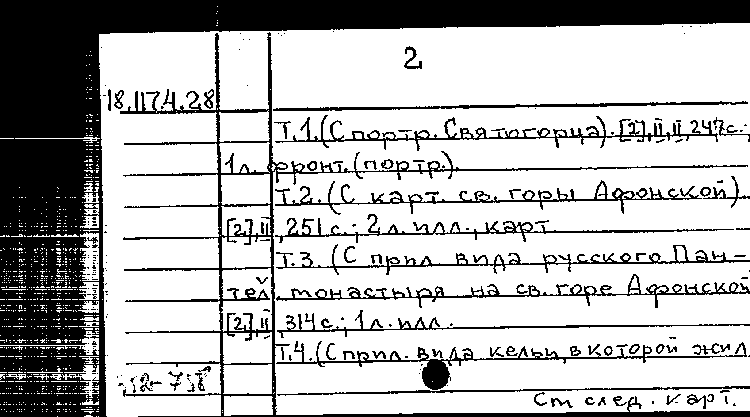 2
18.117.4.28
Т.1.(С портр. Святогорца). [2],II,II,247с.;
1л. фронт.(портр.).
Т.2.(С карт. св. горы Афонской)
[2],II,251с.; 2л. илл., карт
Т.3.(С прил вида русского Пан-
тел. монастыря на св. горе Афонской
[2],II,314с.; 1л. илл.
Т.4.(С прил. вида кельи, в которой жил
См след. карт.